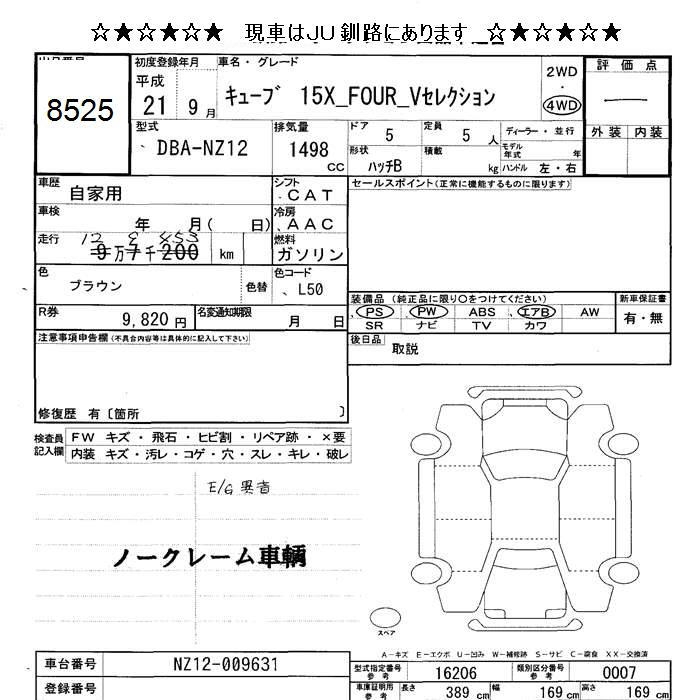 ☆★☆★☆★ 現車はJU釧路にあります ☆★☆★☆★
初度登録年月 車名・グレード 2WD 評価点
8525
平成 21 9月 キューブ 15X_FOUR_Vセレクション ・ 4WD
型式 排気量 ドア 5 定員 5人 ディーラー・並行 外装 内装
DBA-NZ12 1498 cc 形状 ハッチB 積載 kg モデル年式 年 ハンドル 左・右
車歴 自家用 シフト CAT セールスポイント(正常に機能するものに限ります)
車検 年 月( 日) 冷房 AAC
走行 12 8 453
9万7千200 km 燃料 ガソリン
色 ブラウン 色替 色コード L50
装備品 (純正品に限り○をつけてください) 新車保証書
PS PW ABS エアB AW 有・無
SR ナビ TV カワ
R券 9,820円 名変通知期限 月 日
後日品 取説
注意事項申告欄(不具合内容等は具体的に記入して下さい)
修復歴 有〔箇所 〕
検査員記入欄 FW キズ・飛石・ヒビ割・リペア跡・×要
内装 キズ・汚レ・コゲ・穴・スレ・キレ・破レ
E/G異音
ノークレーム車輌
スペア
A-キズ E-エクボ U-凹み W-補修跡 S-サビ C-腐食 XX-交換済
車台番号 NZ12-009631 型式指定番号 参考 16206 類別区分番号 参考 0007
登録番号 車庫証明用 参考 長さ 389cm 幅 169cm 高さ 169cm